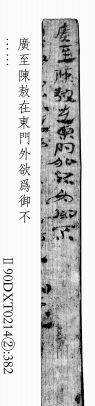 廣至陳敖在東門外欲爲御不
……
Ⅱ90DXT0214②:382